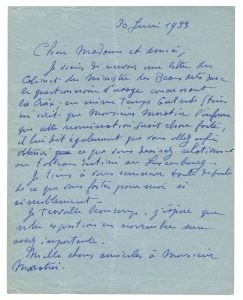 20 Juin 1933
Chère Madame et amie,
Je viens de recevoir une lettre du
Cabinet du Ministre des Beaux arts avec
le questionnaire d'usage concernant
la Croix; en même temps Gertrude Stein
m'écrit que Monsieur
que cette nomination serait chose faite,
il lui dit également que vous allez
obtenir ce que vous désirez relativement
au tableau destiné au Luxembourg.
Je tiens à vous remercier tout de suite
de ce que vous faites pour moi si
aimablement.
Je travaille beaucoup. j'espère que
notre exposition en novembre sera
assez importante.
Mille choses amicales à Monsieur